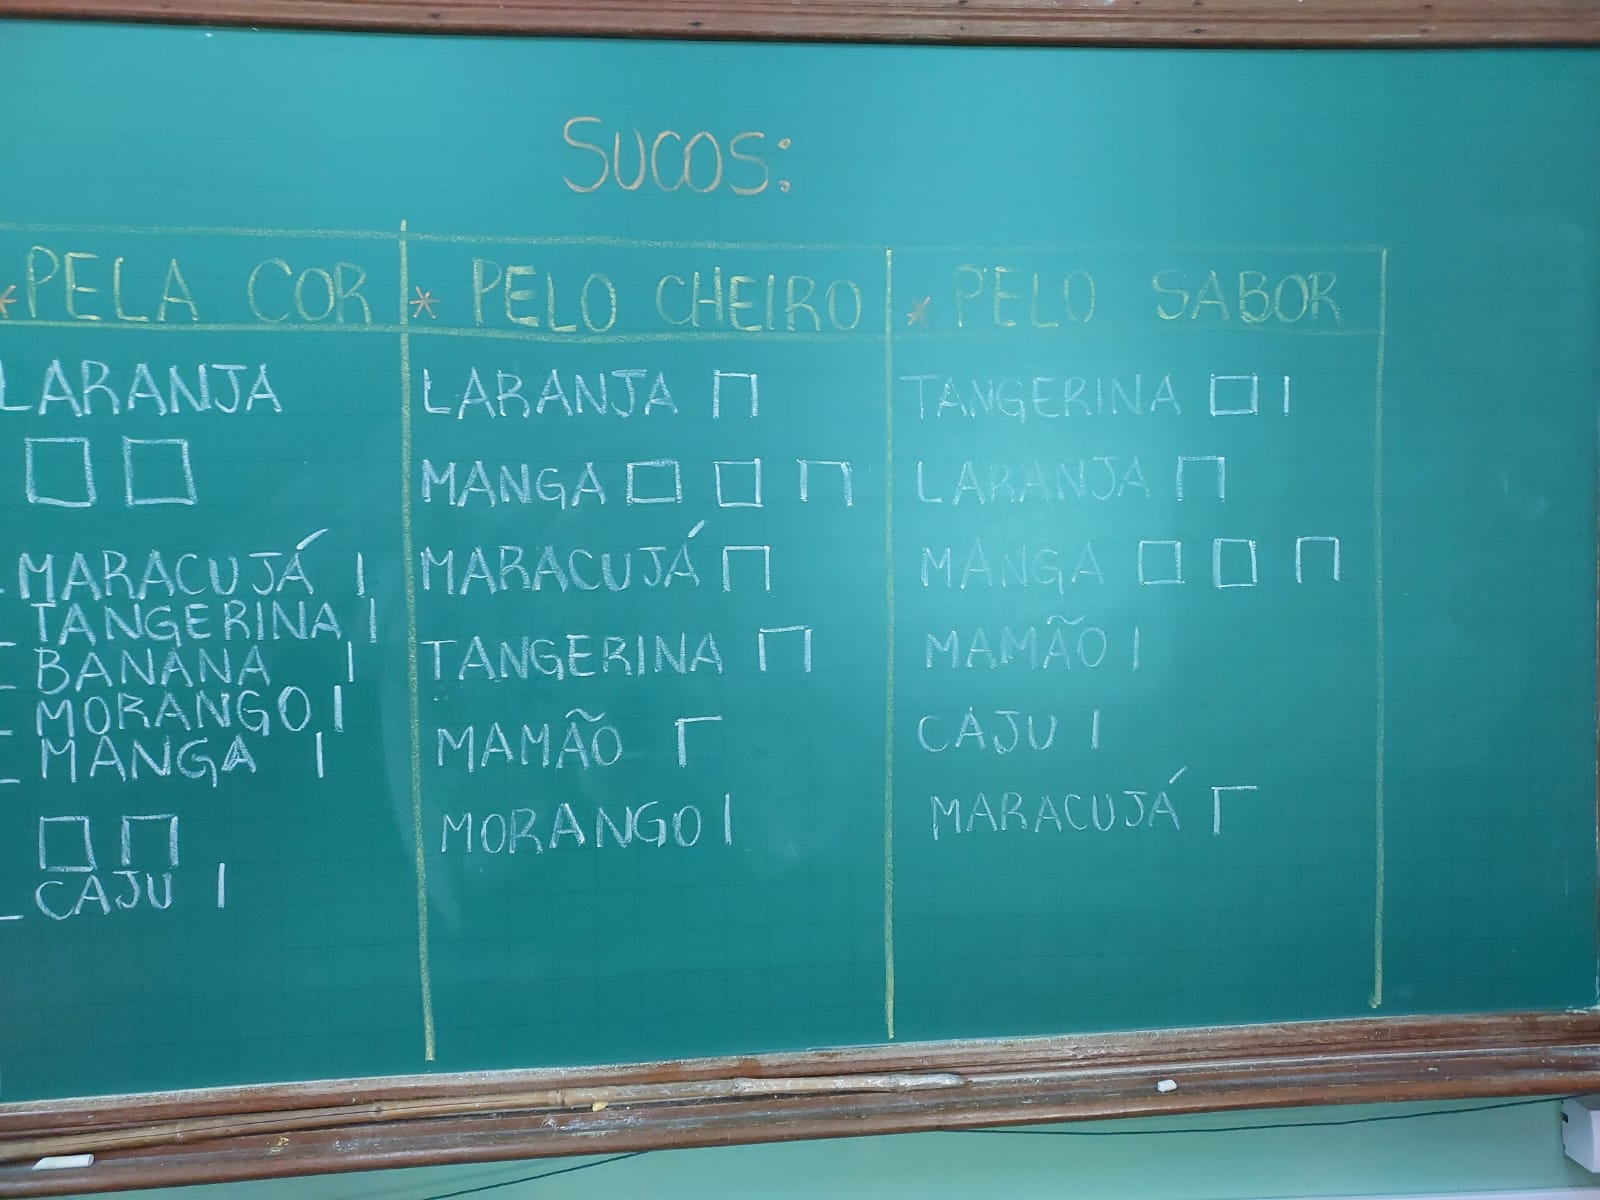 SUCOS:
* PELA COR
LARANJA
- MARACUJÁ |
- TANGERINA |
- BANANA |
- MORANGO |
- MANGA |
- CAJU |
* PELO CHEIRO
LARANJA
MANGA
MARACUJÁ
TANGERINA
MAMÃO
MORANGO |
* PELO SABOR
TANGERINA |
LARANJA
MANGA
MAMÃO |
CAJU |
MARACUJÁ